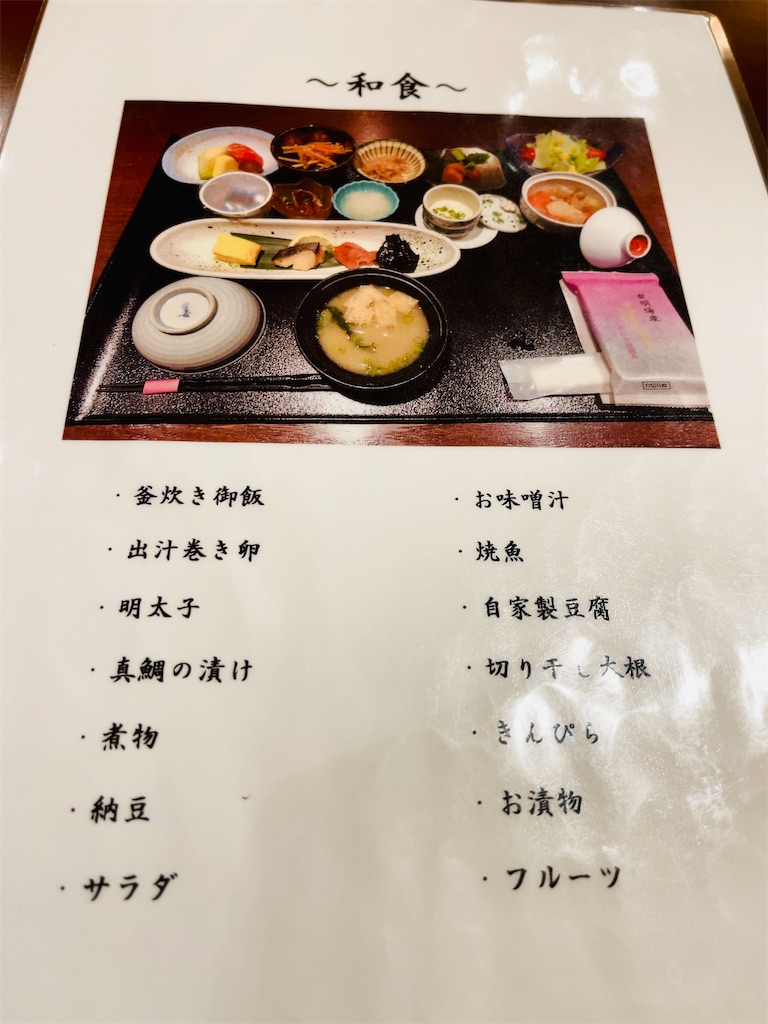 ～和食～
有明海産
・釜炊き御飯
・お味噌汁
・出汁巻き卵
・焼魚
・明太子
・自家製豆腐
・真鯛の漬け
・切り干し大根
・煮物
・きんぴら
・納豆
・お漬物
・サラダ
・フルーツ